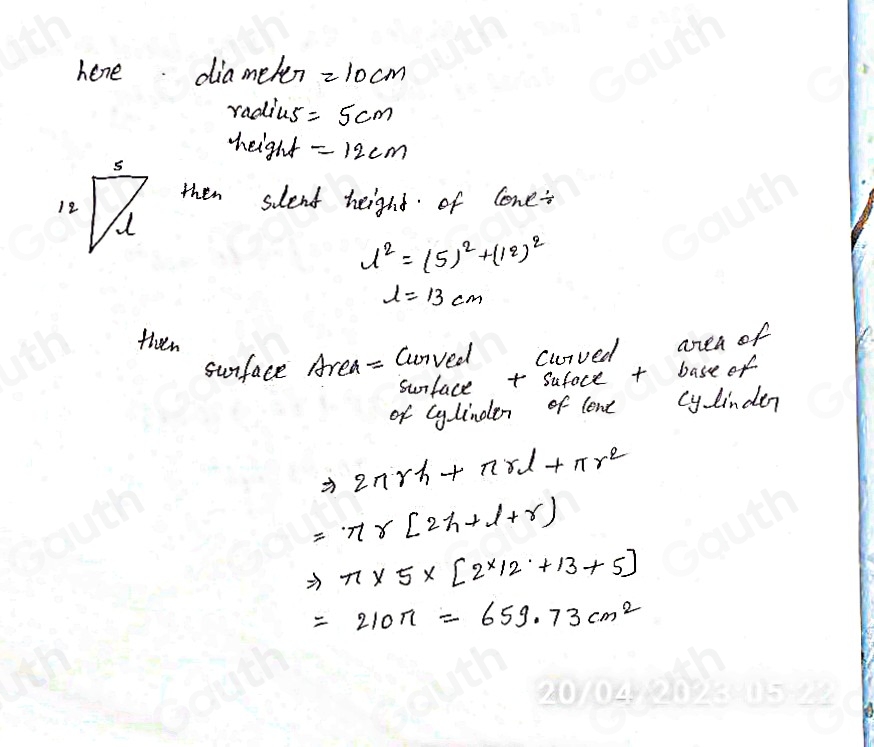 here diameter = 10cm
radius = 5cm
height = 12cm
5
12
l
then slent height of Cone÷
l² = (5)² + (12)²
l = 13 cm
then
surface Area = Curved surface of Cylinder + Curved Sufoce of Cone + area of base of Cylinder
⇒ 2πrh + πrl + πr²
= πr [2h+l+r)
⇒ π × 5 × [2×12 + 13 + 5]
= 210π = 659.73 cm²
20/04/2023 05:22
Gauth